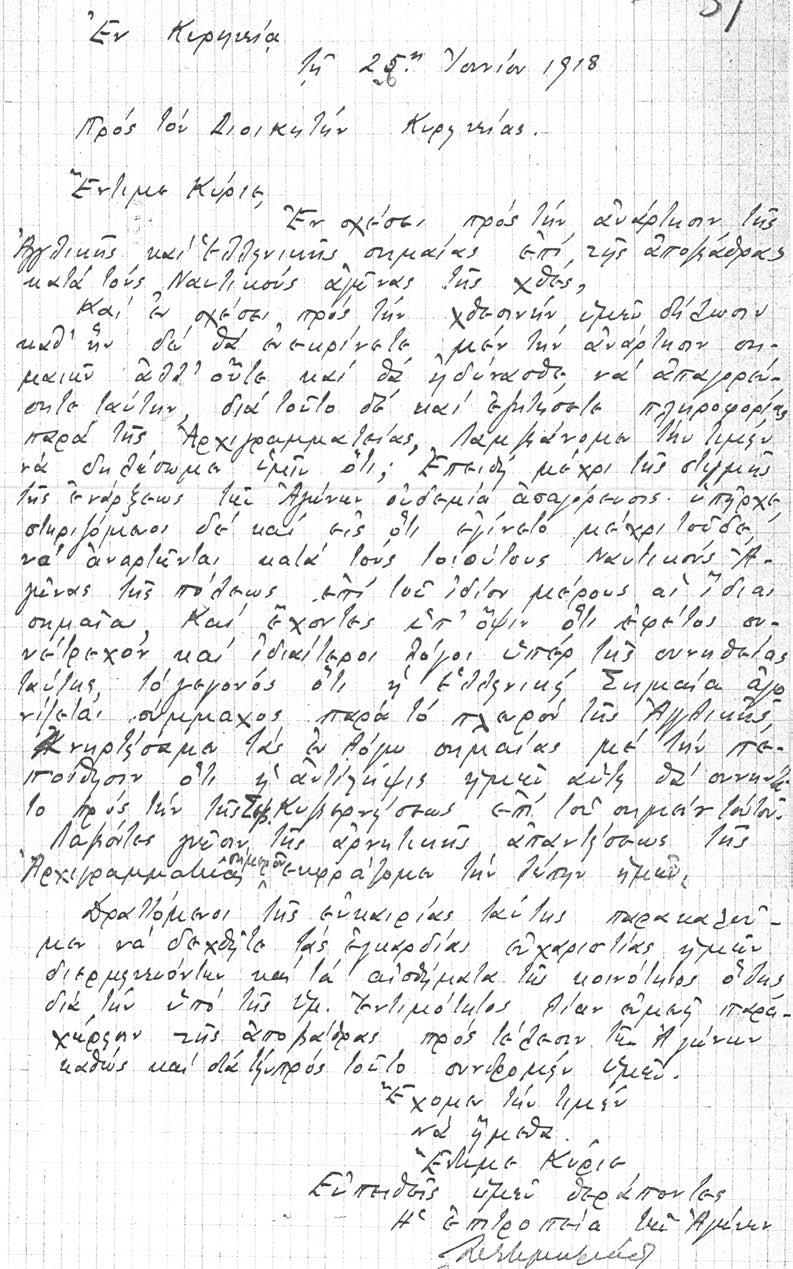 Ἐν Κυρηνείᾳ
τῇ 25ῃ Ἰουνίου 1918
Πρός τόν Διοικητήν Κυρηνείας.
Ἔντιμε Κύριε,
Ἐν σχέσει πρός τήν ἀνάρτησιν τῆς
Ἀγγλικῆς καί Ἑλληνικῆς σημαίας ἐπί τῆς ἀποβάθρας
κατά τούς Ναυτικούς ἀγῶνας τῆς χθές,
Καί ἐν σχέσει πρός τήν χθεσινήν ὑμῶν δήλωσιν
καθ' ἥν δέν θά ἐνεκρίνετε μέν τήν ἀνάρτησιν ση-
μαιῶν ἀλλ' οὔτε καί θά ἠδύνασθε νά ἀπαγορεύ-
σητε ταύτην, διά τοῦτο δέ καί ἐζητήσατε πληροφορίας
παρά τῆς Ἀρχιγραμματείας, Λαμβάνομεν τήν τιμήν
νά δηλώσωμεν ὑμῖν ὅτι; Ἐπειδή μέχρι τῆς στιγμῆς
τῆς ἐνάρξεως τῶν Ἀγώνων οὐδεμία ἀπαγόρευσις ὑπῆρχε
στηριζόμενοι δέ καί εἰς ὅτι ἐγίνετο μέχρι τοῦδε,
νά ἀναρτῶνται κατά τούς τοιούτους Ναυτικούς Ἀ-
γῶνας τῆς πόλεως ἐπί τοῦ ἰδίου μέρους αἱ ἴδιαι
σημαῖαι, Καί ἔχοντες ὑπ' ὄψιν ὅτι ἐφέτος συ-
νέτρεχον καί ἰδιαίτεροι λόγοι ὑπέρ τῆς συνηθείας
ταύτης, τό γεγονός ὅτι ἡ Ἑλληνική Σημαία ἀγω
νίζεται σύμμαχος παρά τό πλευρόν τῆς Ἀγγλικῆς,
Ἀνηρτήσαμεν τάς ἐν λόγῳ σημαίας μέ τήν πε-
ποίθησιν ὅτι ἡ ἀντίληψις ἡμῶν αὕτη θά συνηντᾶ-
το πρός τήν τῆς Σεβ. Κυβερνήσεως ἐπί τοῦ σημείου τούτου.
Λαβόντες γνῶσιν τῆς ἀρνητικῆς ἀπαντήσεως τῆς
Ἀρχιγραμματείας σήμερον ἐκφράζομεν τήν λύπην ἡμῶν,
Δραττόμενοι τῆς εὐκαιρίας ταύτης παρακαλοῦ-
μεν νά δεχθῆτε τάς ἐγκαρδίας εὐχαριστίας ἡμῶν
διερμηνευόντων καί τά αἰσθήματα τῆς κοινότητος ὅλης
διά τήν ὑπό τῆς Ὑμ. Ἐντιμότητος λίαν εὐμενῆ παρα-
χώρησιν τῆς ἀποβάθρας πρός τέλεσιν τῶν Ἀγώνων
καθώς καί διά τήν πρός τοῦτο συνδρομήν ὑμῶν.
Ἔχομεν τήν τιμήν
νά ἤμεθα.
Ἔντιμε Κύριε
Εὐπειθεῖς ὑμῶν θεράποντες
Ἡ ἐπιτροπεία τῶν Ἀγώνων